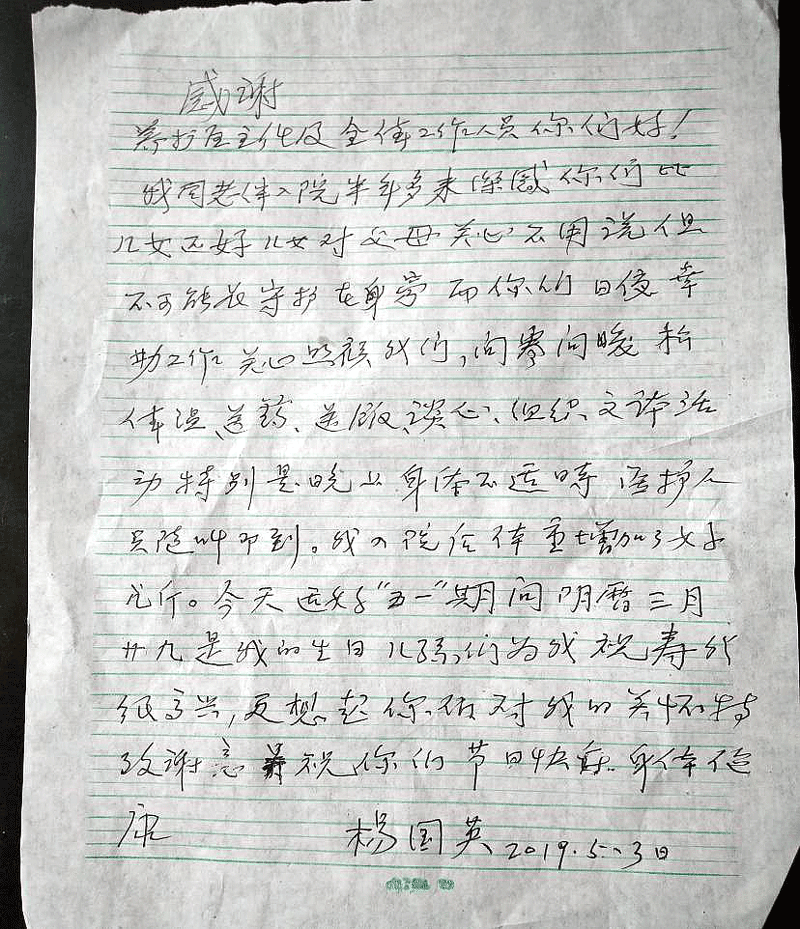 感谢
养护区主任及全体工作人员你们好！
我同老伴入院半年多来深感你们比
儿女还好儿女对父母关心不用说但
不可能长守护在身旁而你们日夜辛
勤工作关心照顾我们，问寒问暖
体温、送药、送饭、谈心、组织文体活
动特别是晚上身体不适时医护人
员随叫即到。我入院后体重增加了
几斤。今天适好“五一”期间阴暦三月
廿九是我的生日儿孙们为我祝寿我
很高兴，更想起你们对我的关怀特
致谢意 祝你们节日快乐身体健
康 杨国英 2019.5.3日